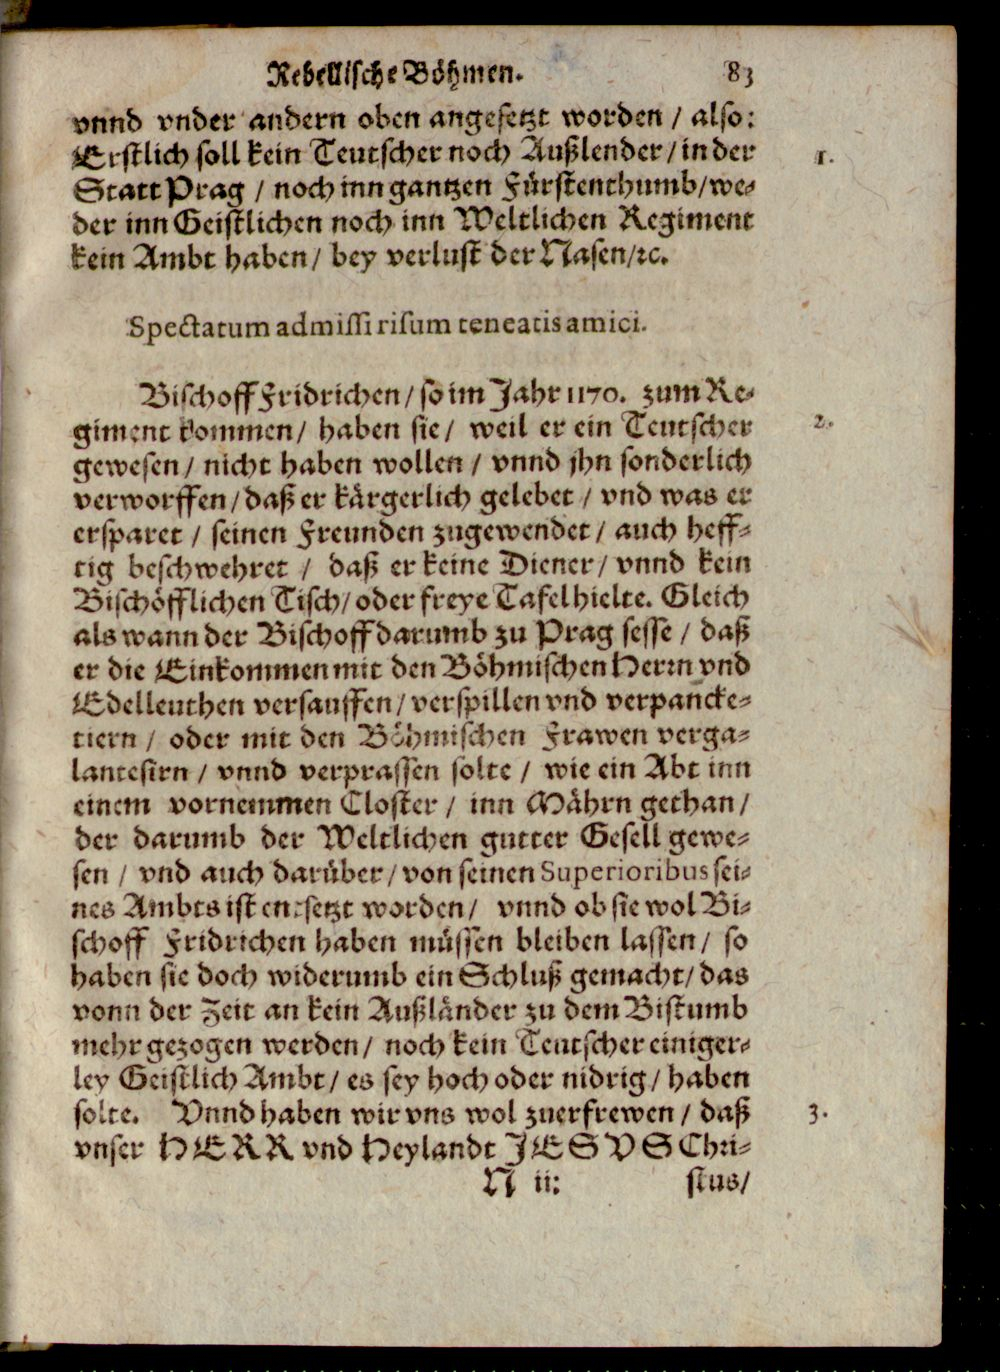 Rebellische Böhmen. 83
vnnd vnder andern oben angesetzt worden / also:
Erstlich soll kein Teutscher noch Außlender / in der 1.
Statt Prag / noch inn gantzen Fürstenthumb / we-
der inn Geistlichen noch inn Weltlichen Regiment
kein Ambt haben / bey verlust der Nasen / ꝛc.
Spectatum admissi risum teneatis amici.
Bischoff Fridrichen / so im Jahr 1170. zum Re-
giment kommen / haben sie / weil er ein Teutscher 2.
gewesen / nicht haben wollen / vnnd jhn sonderlich
verworffen / daß er kärgerlich gelebet / vnd was er
ersparet / seinen Freunden zugewendet / auch heff-
tig beschwehret / daß er keine Diener / vnnd kein
Bischöfflichen Tisch / oder freye Tafel hielte. Gleich
als wann der Bischoff darumb zu Prag sesse / daß
er die Einkommen mit den Böhmischen Herrn vnd
Edelleuthen versauffen / verspillen vnd verpancke-
tiern / oder mit den Böhmischen Frawen verga-
lantesirn / vnnd verprassen solte / wie ein Abt inn
einem vornemmen Closter / inn Mährn gethan /
der darumb der Weltlichen gutter Gesell gewe-
sen / vnd auch darüber / von seinen Superioribus sei-
nes Ambts ist entsetzt worden / vnnd ob sie wol Bi-
schoff Fridrichen haben müssen bleiben lassen / so
haben sie doch widerumb ein Schluß gemacht / das
vonn der Zeit an kein Außländer zu dem Bistumb
mehr gezogen werden / noch kein Teutscher einiger-
ley Geistlich Ambt / es sey hoch oder nidrig / haben
solte. Vnnd haben wir vns wol zuerfrewen / daß 3.
vnser HERR vnd Heylandt JESVS Chri-
N ii: stus /